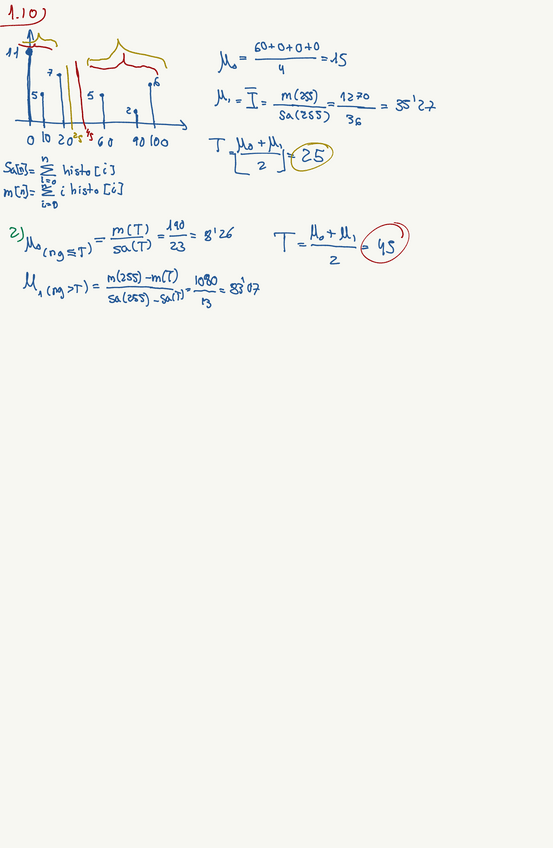 1.10)
11
7
5
5
2
6
0 10 20 25 45 60 90 100
Sa[n] = Σ histo[i]
n
i=0
m[n] = Σ i histo[i]
n
i=0
μ₀ = (60+0+0+0)/4 = 15
μ₁ = Ī = m(255)/sa(255) = 1270/36 = 35'27
T = [(μ₀ + μ₁)/2] = 25
2) μ₀ (ng ≤ T) = m(T)/sa(T) = 190/23 = 8'26
μ₁ (ng > T) = (m(255) - m(T))/(sa(255) - sa(T)) = 1080/13 = 83'07
T = (μ₀ + μ₁)/2 = 45